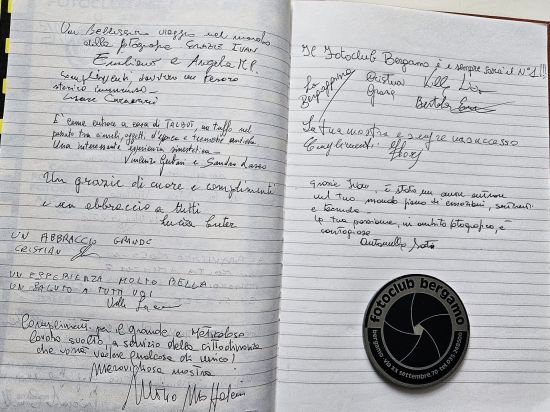 Un bellissimo viaggio nel mondo
della fotografia GRAZIE IVAN
Emiliano e Angela M.P.
Complimenti, davvero un tesoro
storico immenso
Cesare
È come entrare a casa di TALBOT, un tuffo nel
passato tra cimeli, oggetti d'epoca e tecniche antiche
Una interessante esperienza sinestetica.
Vincenzo e Sandra
Un grazie di cuore e complimenti
e un abbraccio a tutti
Lucia
UN ABBRACCIO GRANDE
CRISTIAN
UN ESPERIENZA MOLTO BELLA
UN SALUTO A TUTTI VOI
Complimenti per il grande e Meticoloso
lavoro svolto a servizio della cittadinanza
che vorrà vedere qualcosa di unico!
Meravigliosa mostra
Mirko
Il Fotoclub Bergamo è e sempre sarà il N°1!!!
La
Cristina
Grazie
La tua mostra è sempre un successo
Grazie Ivan, è stato un onore entrare
nel tuo mondo pieno di emozioni, sentimenti
e tecnica
La tua passione, in ambito fotografico, è
contagiosa
Antonella
fotoclub bergamo
bergamo - via 24 settembre, 70 tel. 035